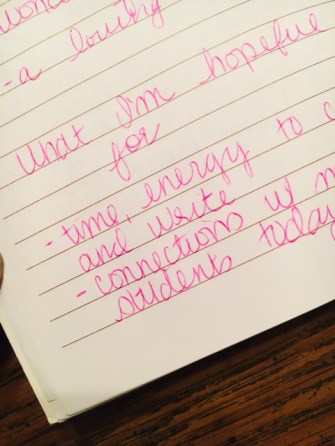 - a loving
What I'm hopeful
for
- time, energy to
and write
- connections w/
students today